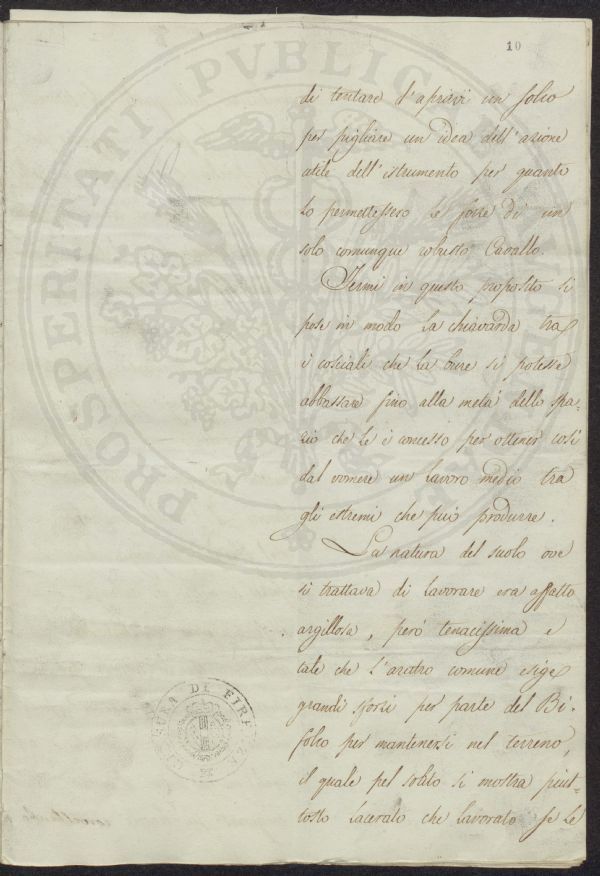 10
di tentare d'aprirvi un solco
per pigliare un idea dell'azione
utile dell'istrumento per quanto
lo permettessero le forze di un
solo comunque robusto Cavallo.
Fermi in questo proposito si
pose in modo la chiavarda tra
i cosciali che la bure si potesse
abbassare fino alla metà dello spa-
zio che le è concesso per ottener così
dal vomere un lavoro medio tra
gli estremi che può produrre.
La natura del suolo ove
si trattava di lavorare era affatto
argillosa, però tenacissima, e
tale che l'aratro comune esige
grandi sforzi per parte del Bi-
folco per mantenersi nel terreno,
il quale pel solito si mostra piut-
tosto lacerato che lavorato se le
PROSPERITATI PVBLICAE
DI FIRENZE